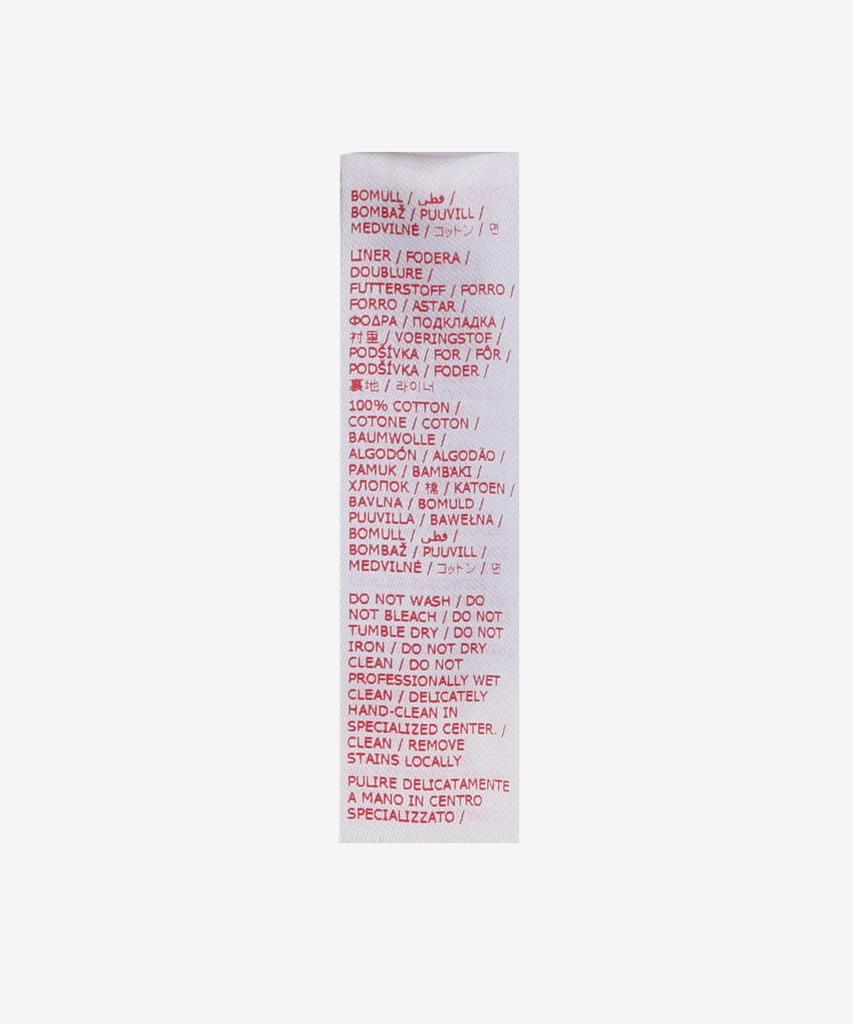 BOMULL / قطن /
BOMBAŽ / PUUVILL /
MEDVILNĖ / コットン / 면
LINER / FODERA /
DOUBLURE /
FUTTERSTOFF / FORRO /
FORRO / ASTAR /
ΦΟΔΡΑ / ПОДКЛАДКА /
衬里 / VOERINGSTOF /
PODŠÍVKA / FOR / FÔR /
PODŠÍVKA / FODER /
裏地 / 라이너
100% COTTON /
COTONE / COTON /
BAUMWOLLE /
ALGODÓN / ALGODÃO /
PAMUK / ΒΑΜΒΑΚΙ /
ХЛОПОК / 棉 / KATOEN /
BAVLNA / BOMULD /
PUUVILLA / BAWEŁNA /
BOMULL / قطن /
BOMBAŽ / PUUVILL /
MEDVILNĖ / コットン / 면
DO NOT WASH / DO
NOT BLEACH / DO NOT
TUMBLE DRY / DO NOT
IRON / DO NOT DRY
CLEAN / DO NOT
PROFESSIONALLY WET
CLEAN / DELICATELY
HAND-CLEAN IN
SPECIALIZED CENTER. /
CLEAN / REMOVE
STAINS LOCALLY
PULIRE DELICATAMENTE
A MANO IN CENTRO
SPECIALIZZATO /